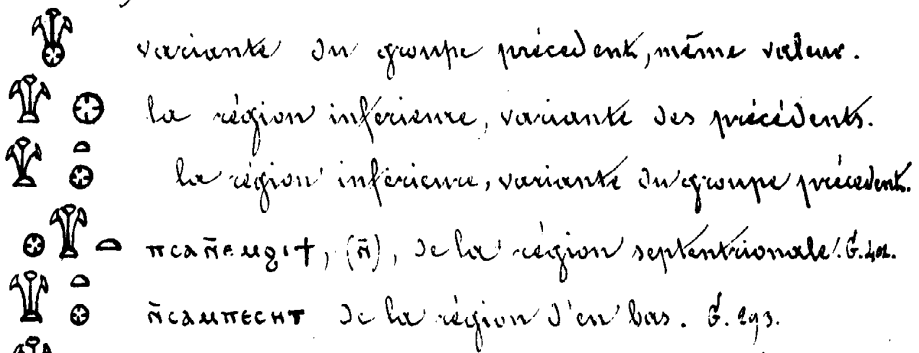 variante du groupe précédent, même valeur.
la région inférieure, variante des précédents.
la région inférieure, variante du groupe précédent.
ⲡⲥⲁⲛ̄ⲉⲙϩⲓϯ, (ⲛ̄), de la région septentrionale. G. 402.
ⲛ̄ⲥⲁⲙⲡⲉⲥⲏⲧ de la région d'en bas. G. 293.